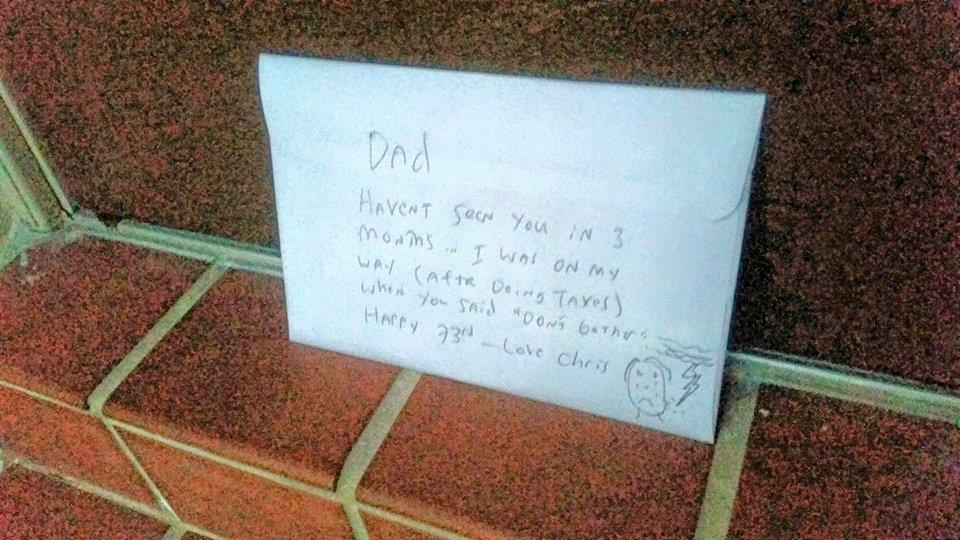 Dad
HAVENT SEEN YOU IN 3
MONTHS ... I WAS ON MY
WAY (AFTR DOING TAXES)
WHEN YOU SAID "DON'T BOTHER".
HAPPY 73rd - LOVE CHRIS